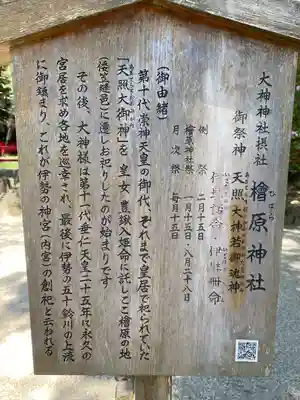 大神神社摂社
檜原神社
ひばら
御祭神
天照大神若御魂神
伊弉諾命 伊弉冊命
例祭 二月十五日
檜原神社祭 一月十五日・八月二十八日
月次祭 毎月十五日
(御由緒)
第十代崇神天皇の御代、それまで皇居で祀られていた
「天照大御神」を皇女 豊鍬入姫命に託しここ檜原の地
(倭笠縫邑)に遷しお祀りしたのが始まりです
その後、大神様は第十一代垂仁天皇二十五年に永久の
宮居を求め各地を巡幸され、最後に伊勢の五十鈴川の上流
に御鎮まり、これが伊勢の神宮(内宮)の創祀と云われる